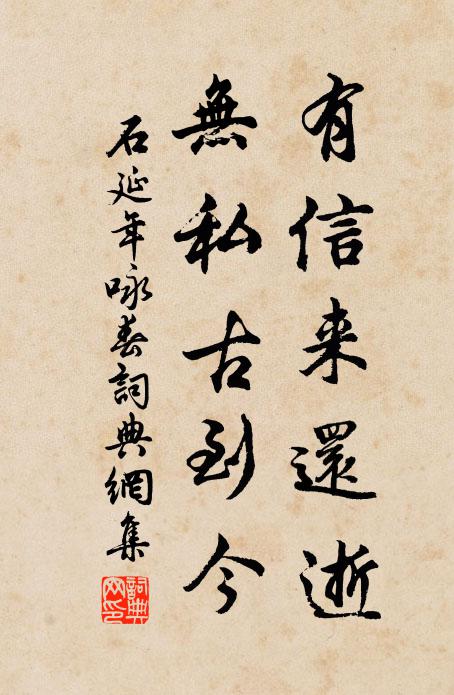 有信来還逝
無私古到今
石延年咏春詞典網集
詞典網印